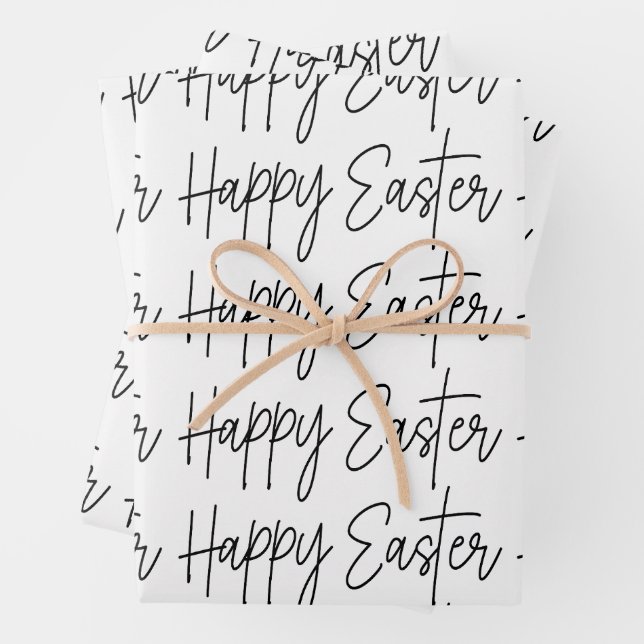 Easter
Happy Easter
r Happy Easter -
r Happy Easter -
r Happy Easter -
r Happy Easter -